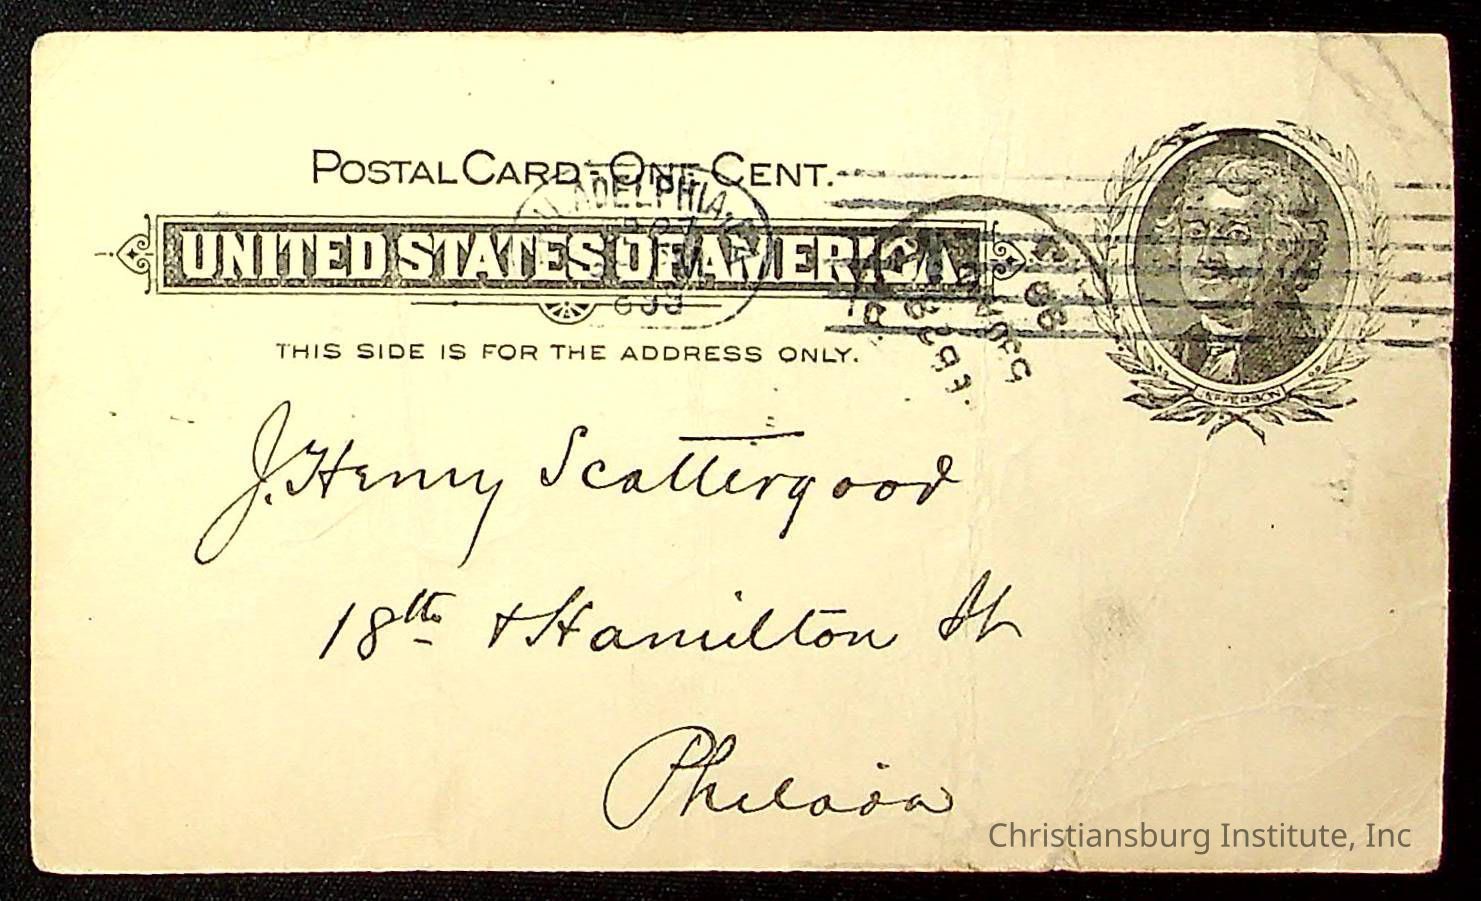 POSTAL CARD - ONE CENT.
UNITED STATES OF AMERICA
THIS SIDE IS FOR THE ADDRESS ONLY.
JEFFERSON
J. Henry Scattergood
18th + Hamilton St
Philada
Christiansburg Institute, Inc